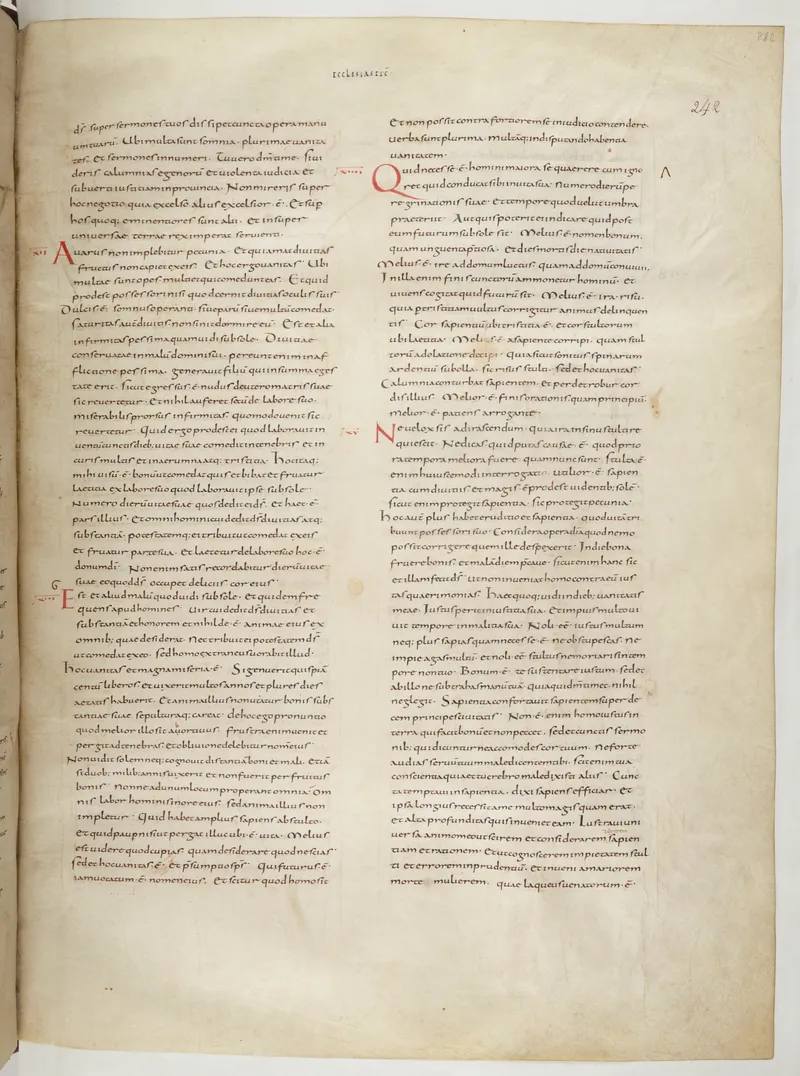 ECCLESIASTIC̄
242
dr̄ super sermones tuos dissipet cuncta opera manu
um tuarū. Ubi multa sunt somnia. plurimae uanita
tes. et sermones innumeri. Tu uero dm̄ time. Si ui
deris calumnias egenorū et uiolenta iudicia et
subuerti iustitiam in prouincia. Non mireris super
hoc negotio quia excelso alius excelsior ē. Et sup
hos quoq; eminentiores sunt alii. et insuper
uniuersae terrae rex imperat seruienti.
Auarus non implebitur pecunia. Et qui amat diuitias
fructus non capiet ex eis. Et hoc ergo uanitas. Ubi
multae sunt opes multi et qui comedunt eas. Et quid
prodest possessori nisi quod cernit diuitias oculis suis
Dulcis ē somnus operanti. siue parū siue multū comedat.
Saturitas aut̄ diuitis non sinit dormire eū. Est et alia
infirmitas pessima quam uidi sub sole. Diuitiae
conseruatae in malū domini sui. pereunt enim in af
flictione pessima. generauit filiū qui in summa eges
tate erit. sicut egressus ē nudus de utero matris suae
sic reuertetur. Et nihil auferet secū de labore suo.
miserabilis prorsus infirmitas. quomodo uenit sic
reuertetur. Quid ergo prodest ei quod laborauit in
uentū cunctis dieb; uitae suae comedit in tenebris et in
curis multis et in aerumna atq; tristitia. Hoc itaq;
mihi uisū ē bonū ut comedat quis et bibat et fruatur
laetitia ex labore suo quod laborauit ipse sub sole.
Numero dierū uitae suae quos dedit ei ds̄. Et haec ē
pars illius. Et omni homini cui dedit ds̄ diuitias atq;
substantiā. potestatemq; ei tribuit ut comedat ex eis
et fruatur parte sua. Et laetetur de labore suo hoc ē
donum dī. Non enim satis recordabitur dierū uitae
suae eo quod ds̄ occupet deliciis cor eius
Est et aliud malū quod uidi sub sole. Et quidem fre
quens apud homines. Uir cui dedit ds̄ diuitias et
substantiā et honorem et nihil deē animae eius ex
omnib; quae desiderat. Nec tribuit ei potestatem ds̄
ut comedat ex eo. sed homo extraneus uorabit illud.
Hoc uanitas et magna miseria ē. Si genuerit quispiā
centū liberos. et uixerit multos annos et plures dies
aetatis habuerit. Et anima illius non utatur bonis subs
tantiae suae sepulturaq; careat. de hoc ego pronuntio
quod melior illo sit abortiuus. frustra enim uenit et
pergit ad tenebras. et obliuione delebitur nomen eius
Non uidit solem neq; cognouit distantiā boni et mali. etiā
si duob; milib; annis uixerit et non fuerit perfruitus
bonis. Nonne ad unum locum properant omnia. Om
nis labor hominis in ore eius. sed anima illius non
impletur. Quid habet amplius sapiens ab stulto.
et quid pauper nisi ut pergat illuc ubi ē uita. Melius
est uidere quod cupias. quam desiderare quod nescias
sed et hoc uanitas ē. et praesumptio sps̄. Qui futurus ē
iam uocatum ē nomen eius. et scitur quod homo sit
Et non possit contra fortiorem se in iudicio contendere.
uerba sunt plurima. multaq; in disputando habentia
uanitatem.
Quid necesse ē homini maiora se quaerere cum igno
ret quid conducat sibi in uita sua. Numero dierū pe
regrinationis suae. et tempore quod uelut umbra
praeterit. Aut quis poterit ei indicare quid post
eum futurum sub sole sit. Melius ē nomen bonum.
quam unguenta pretiosa. et dies mortis die natiuitatis
Melius ē ire ad domum luctus. quam ad domū conuiuii.
In illa enim finis cunctorū ammonetur hominū. et
uiuens cogitat quid futurū sit. Melior ē ira risu.
quia per tristitiam uultus corrigitur animus delinquen
tis. Cor sapientiū ubi tristitia ē. et cor stultorum
ubi laetitia. Melius ē a sapiente corripi. quam stul
torū adolatione decipi. Quia sicut sonitus spinarum
ardentiū sub olla. sic risus stulti. sed et hoc uanitas
Calumnia conturbat sapientem. et perdet robur cor
dis illius. Melior ē finis orationis quam principiū.
melior ē patiens arrogante.
Ne uelox sis ad irascendum. quia ira in sinu stulti re
quiescit. Ne dicas quid putas causae ē quod prio
ra tempora meliora fuere. quam nunc sunt. stulta ē
enim huiuscemodi interrogatio. utilior ē sapien
tia cum diuitiis et magis prodest uidentib; solē.
sicut enim protegit sapientia. sic protegit pecunia.
Hoc aut̄ plus habet eruditio et sapientia. quod uitā tri
buunt possessori suo. Considera opera dī quod nemo
possit corrigere quem ille despexerit. In die bona
fruere bonis. et malā diem praecaue. sicut enim hanc sic
et illam fecit ds̄. ut non inueniat homo contra eū ius
tas querimonias. Haec quoq; uidi in dieb; uanitatis
meae. Iustus perit in iustitia sua. et impius multo ui
uit tempore in malitia sua. Noli eē iustus multum
neq; plus sapias quam necesse ē ne obstupescas. Ne
impie agas multū. et noli eē stultus ne moriaris in tem
pore non tuo. Bonum ē te sustentare iustum. sed et
ab illo ne subtrahas manū tuā. quia qui dm̄ timet nihil
neglegit. Sapientia confortauit sapientem super de
cem principes ciuitatis. Non ē enim homo iustus in
terra qui faciat bonū et non peccet. sed et cunctis sermo
nib; qui dicuntur ne accomodes cor tuum. Ne forte
audias seruū tuum maledicentem tibi. scit enim tua
conscientia quia et tu crebro maledixisti aliis. Cunc
ta temptaui in sapientia. dixi sapiens efficiar. et
ipsa longius recessit a me multo magis quam erat.
et alta profunditas quis inueniet eam. Lustraui uni
uersa animo meo ut scirem et considerarem. sapien
tiam et rationem. Et ut cognoscerem impietatem stul
ti et errorem inprudentiū. et inueni amariorem
morte mulierem. quae laqueus uenatorum ē